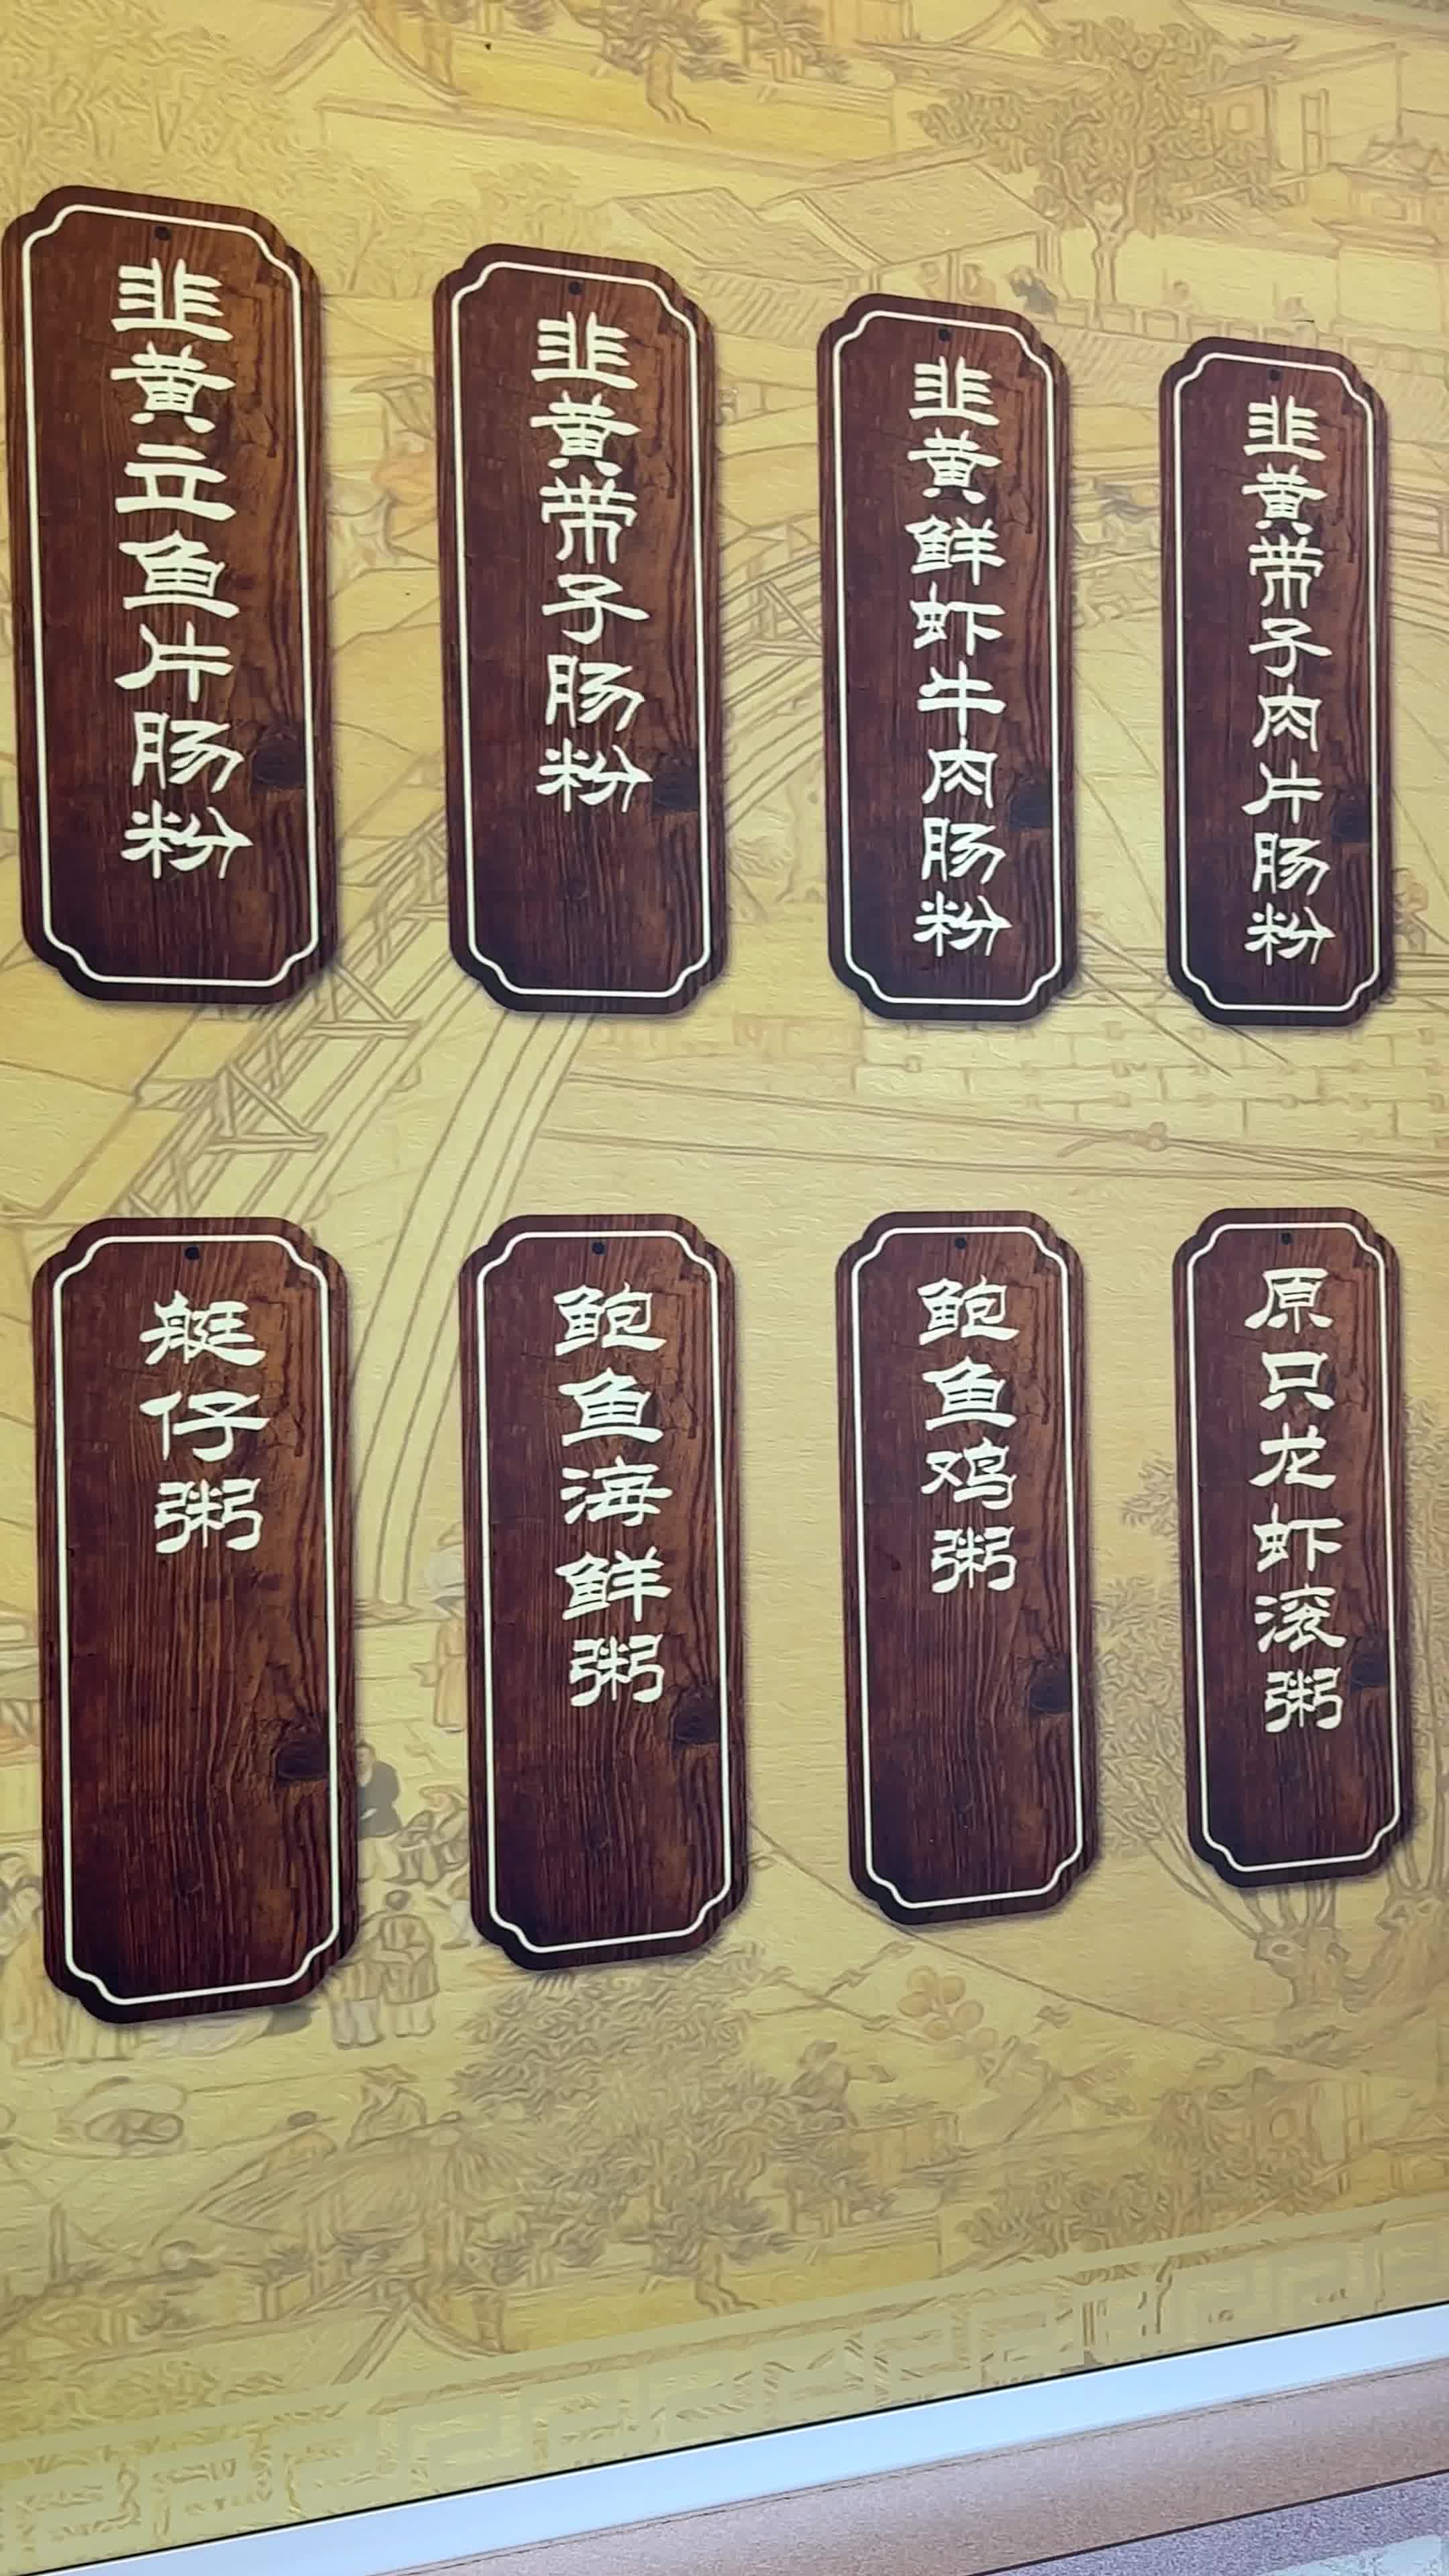 韭黄立鱼片肠粉
韭黄带子肠粉
韭黄鲜虾牛肉肠粉
韭黄带子肉片肠粉
艇仔粥
鲍鱼海鲜粥
鲍鱼鸡粥
原只龙虾滚粥